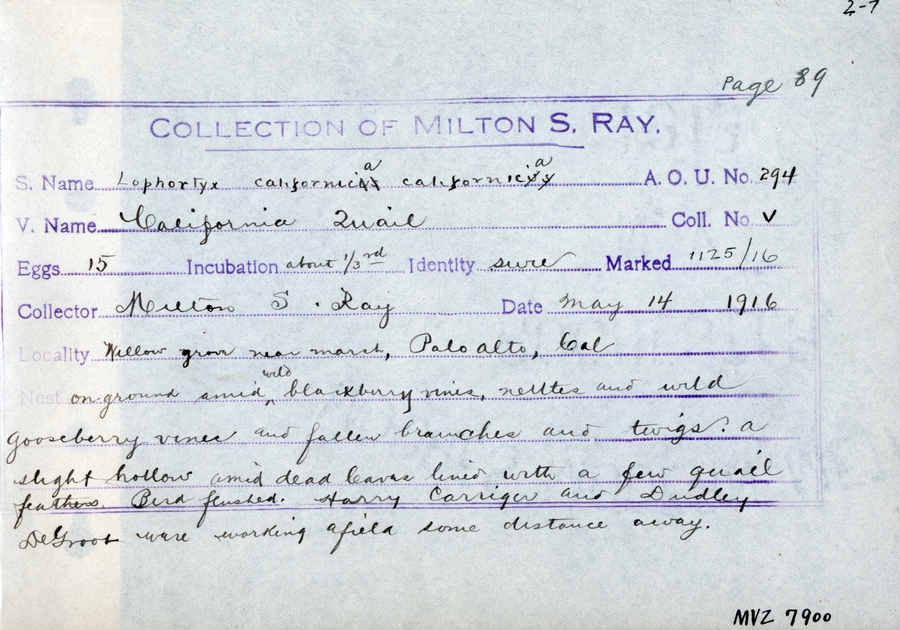 2-7
Page 89
COLLECTION OF MILTON S. RAY.
S. Name Lophortyx californica californica A. O. U. No. 294
V. Name California Quail Coll. No. V
Eggs 15 Incubation about 1/3rd Identity sure Marked 1125/16
Collector Milton S. Ray Date May 14 1916
Locality Willow grove near marsh, Palo alto, Cal
Nest on ground amid wild blackberry vines, nettles and wild
gooseberry vines and fallen branches and twigs: a
slight hollow amid dead leaves lined with a few quail
feathers. Bird flushed. Harry Carriger and Dudley
DeGroot were working afield some distance away.
MVZ 7900